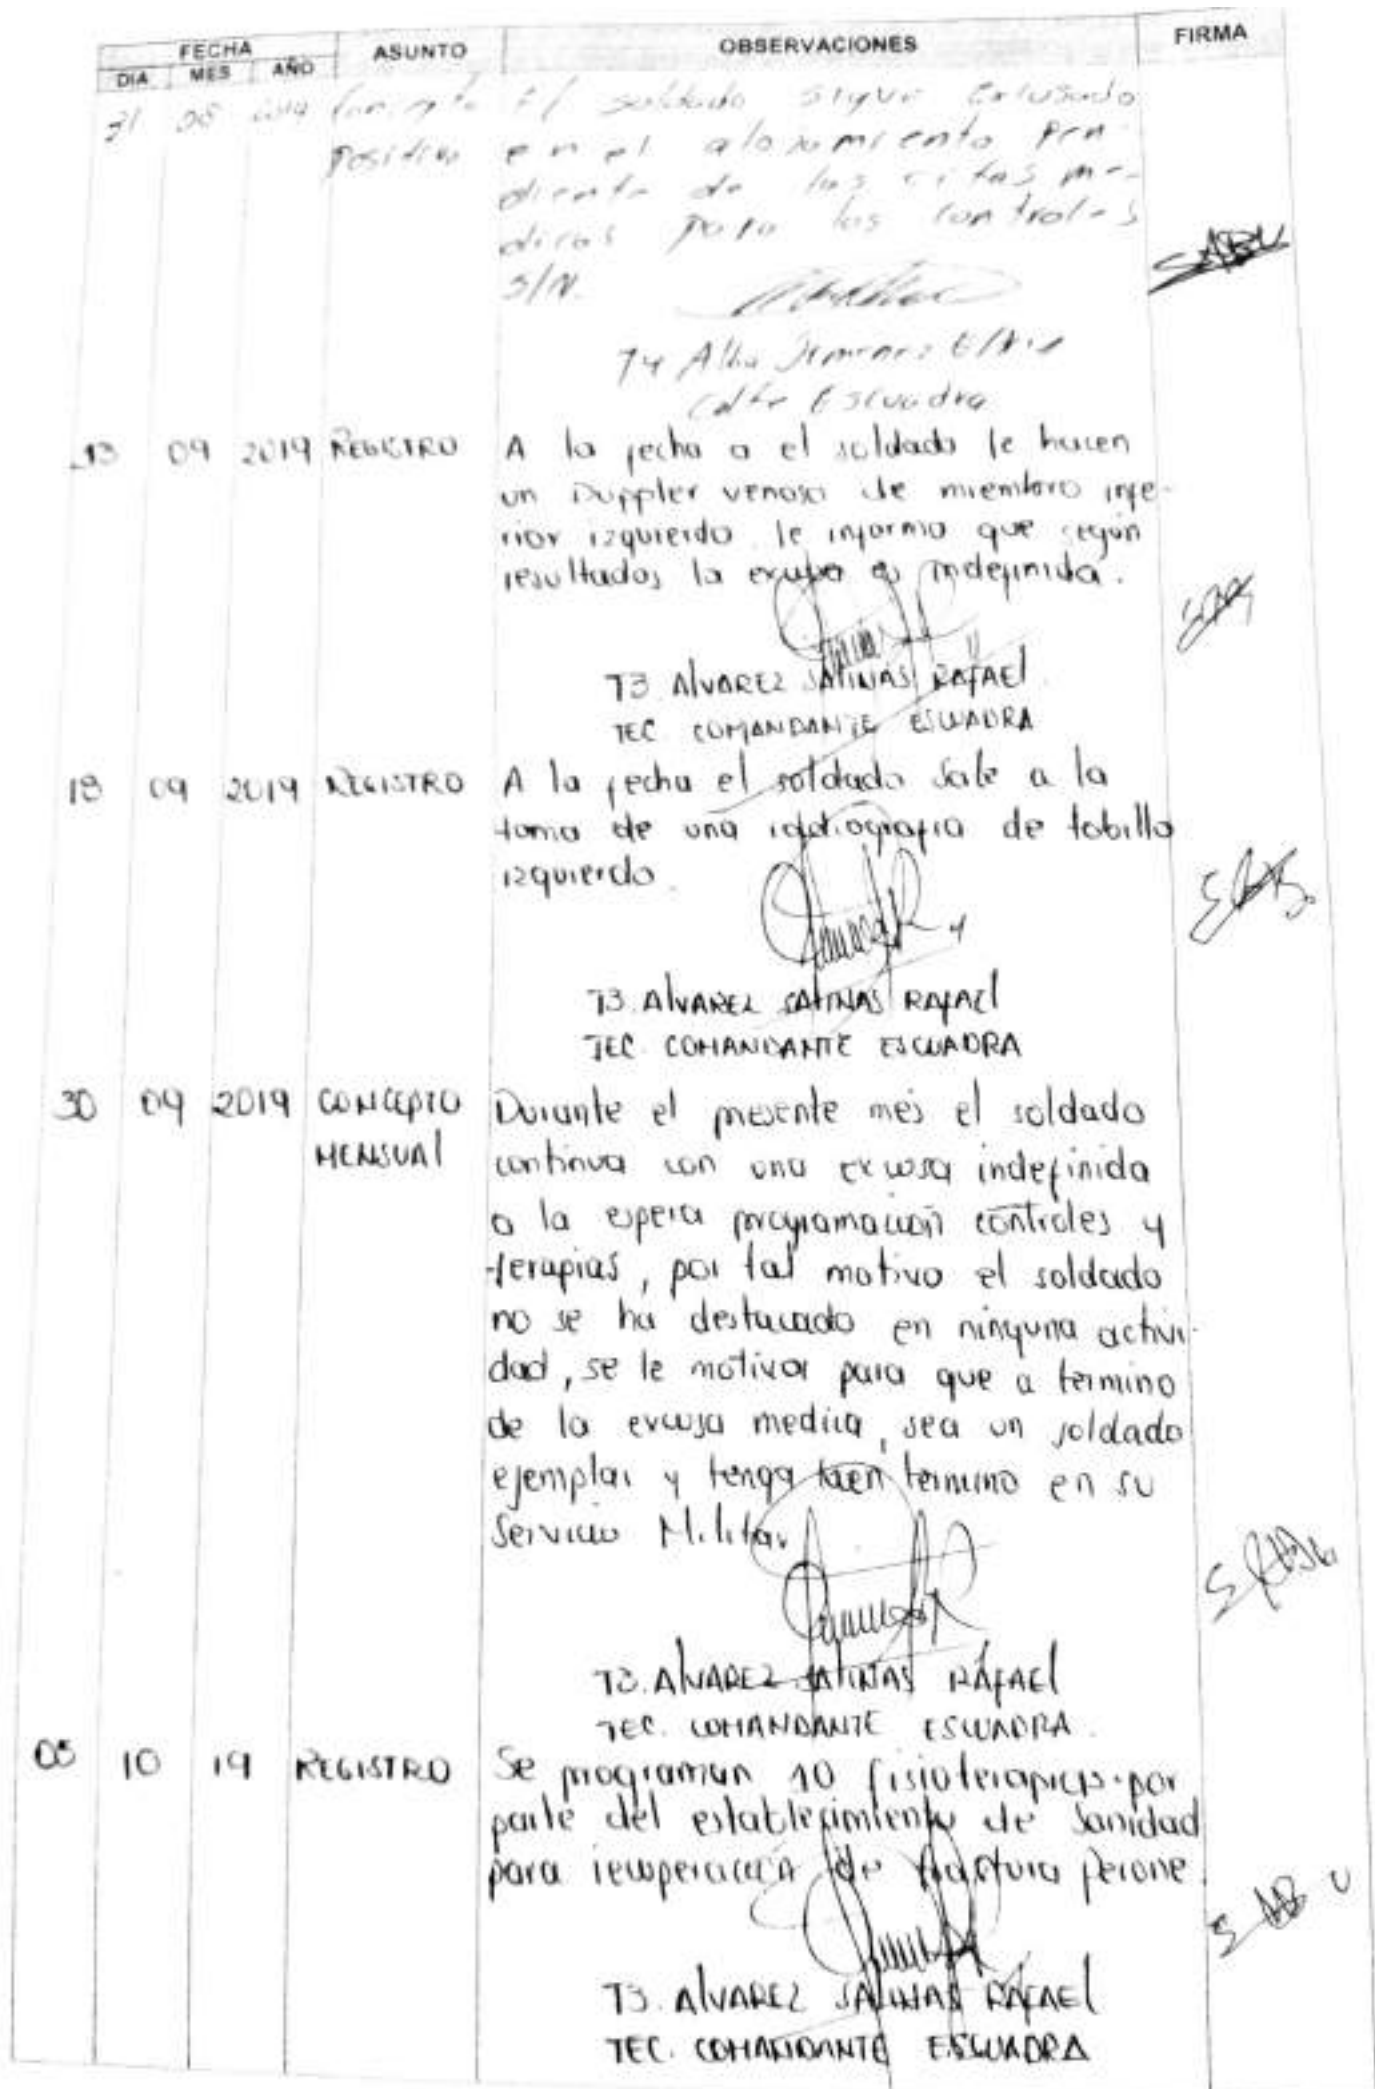 FECHA
DIA MES AÑO ASUNTO OBSERVACIONES FIRMA
31 08 2019 Concepto El soldado sigue excusado
Positivo en el alojamiento Pen-
diente de las citas me-
dicas para los controles
S/N.
T4 Alba Jimenez
Cdte Escuadra
13 09 2019 REGISTRO A la fecha a el soldado le hacen
un Duppler venoso de miembro infe-
rior izquierdo le informo que según
resultados la excusa es indefinida.
T3 ALVAREZ SALINAS RAFAEL
TEC COMANDANTE ESCUADRA
18 09 2019 REGISTRO A la fecha el soldado sale a la
toma de una radiografia de tobillo
izquierdo.
T3. ALVAREZ SALINAS RAFAEL
TEC. COMANDANTE ESCUADRA
30 09 2019 CONCEPTO Durante el presente mes el soldado
MENSUAL continua con una excusa indefinida
a la espera programación controles y
terapias, por tal motivo el soldado
no se ha destacado en ninguna activi-
dad, se le motiva para que a termino
de la excusa medica, sea un soldado
ejemplar y tenga buen termino en su
Servicio Militar.
T3. ALVAREZ SALINAS RAFAEL
TEC. COMANDANTE ESCUADRA.
05 10 19 REGISTRO Se programan 10 fisioterapias por
parte del establecimiento de Sanidad
para recuperación de fractura perone.
T3. ALVAREZ SALINAS RAFAEL
TEC. COMANDANTE ESCUADRA